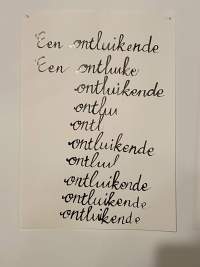 Een ontluikende
Een ontluike
ontluikende
ontluu
ontl
ontluikende
ontluul
ontluikende
ontluikende
ontluikende